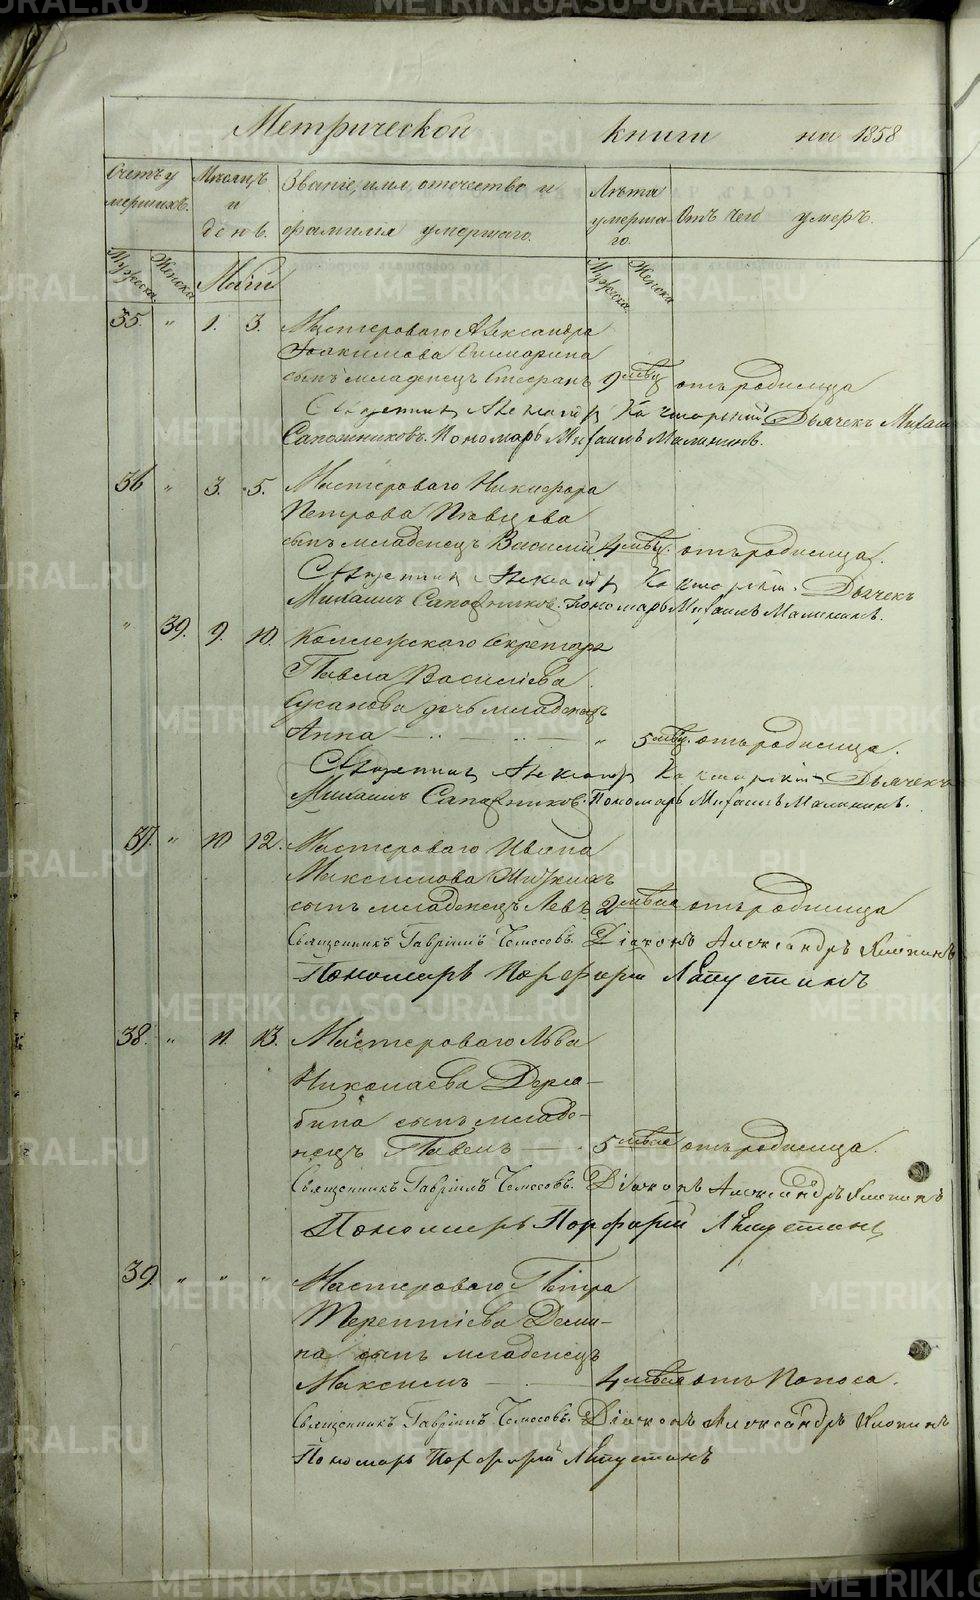 Метрической книги на 1858
Счетъ умершихъ. Мѣсяцъ и день. Званіе, имя, отчество и фамилия умершаго. Лѣта умершаго. Отъ чего умеръ.
Мужеска. Женска. Маій Мужеска. Женска
35. „ 1. 3. Мастероваго Александра
сынъ младенецъ Стефанъ 9 мѣц отъ родимца
Священник Александр Дьячекъ Михаил
Сапожниковъ. Пономарь Михаилъ Малининъ.
36 „ 3. 5. Мастероваго Никифора
Петрова Пѣвцова
сынъ младенецъ Василій 4 мѣц. отъ родимца.
Священник Александр Дьячекъ
Михаилъ Сапожников. Пономарь Михаилъ Малининъ.
„ 39. 9. 10. Коллежскаго Секретаря
Павла Василіева
Сусанова дочь младенецъ
Анна „ 5 мѣц. отъ родимца.
Священник Александр Дьячекъ
Михаилъ Сапожников. Пономарь Михаилъ Малининъ.
37. „ 10 12. Мастероваго Ивана
Максимова
сынъ младенецъ Левъ 2 мѣсяца отъ родимца
Священникъ Гавріилъ Діаконъ Александръ Хлопинъ
Пономарь Порфирій Лапустинъ
38. „ 11. 13. Мастероваго Льва
Николаева Держа-
бина сынъ младе-
нецъ Павелъ 5 мѣсяца отъ родимца.
Священникъ Гавріилъ Діаконъ Александръ Хлопинъ
Пономарь Порфирій Лапустинъ
39. „ „ „ Мастероваго Петра
Терентіева Деми-
на сынъ младенецъ
Максимъ 4 мѣсяца отъ поноса.
Священникъ Гавріилъ Діаконъ Александръ Хлопинъ
Пономарь Порфирій Лапустинъ
METRIKI.GASO-URAL.RU